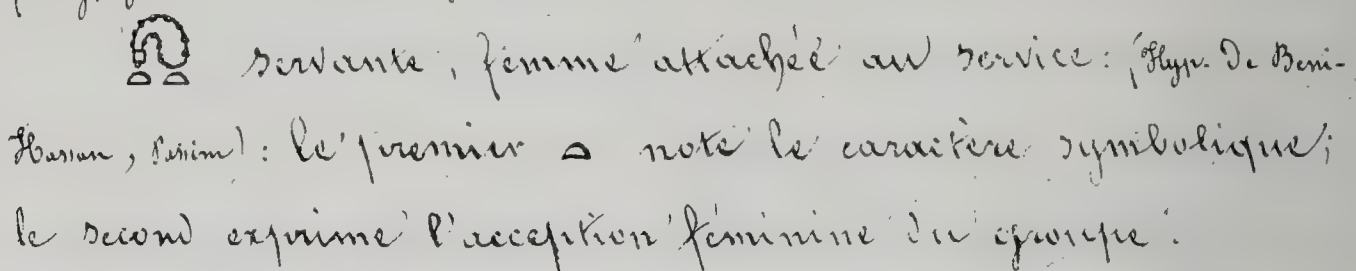 servante, femme attachée au service: (Hyp. De Beni-
Hassan, Passim): le premier 𓏏 note le caractère symbolique;
le second exprime l'acception féminine du groupe.